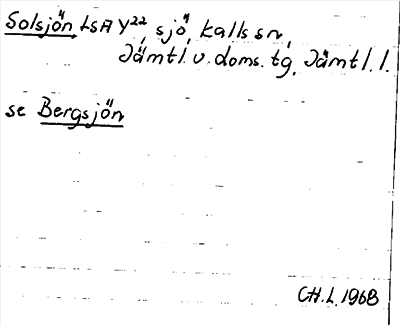 Solsjön LSA Y22, sjö, Kalls sn,
Jämtl. v. doms. tg, Jämtl. l.
se Bergsjön
CH.L. 1968